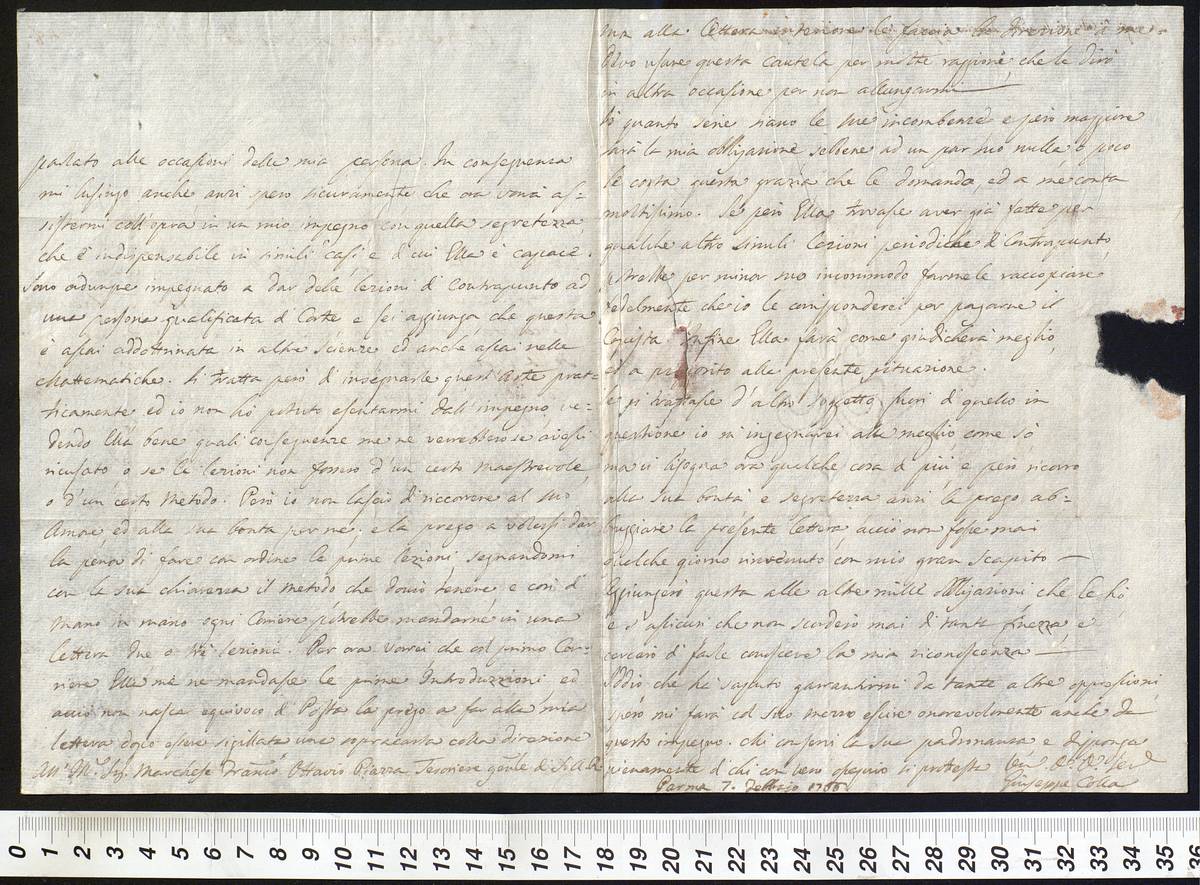 passato alle occasioni della mia persona. In conseguenza
mi lusingo anche anzi spero sicuramente che ora vorrà as=
sistermi coll'opra in un mio impegno con quella segretezza
che è indispensabile in simili casi e di cui Ella è capace.
Sono adunque impegnato a dar delle lezioni di Contrapunto ad
una persona qualificata di Corte e sei aggiunga che questa
è assai addottrinata in altre scienze ed anche assai nelle
Mattematiche. Si tratta però d'insegnarle quest'Arte prat=
ticamente ed io non hò potuto esentarmi dall'impegno, ve=
dendo Ella bene quali conseguenze me ne verrebbero se avessi
ricusato o se le lezioni non fossero d'un certo Maestrevole
o d'un certo Metodo. Però io non lascio di riccorrere al suo
Amore ed alla sua bontà per me, e la prego a volersi dar
la pena di fare con ordine le prime lezioni segnandomi
con la sua chiarezza il metodo che dovrò tenere e così di
mano in mano ogni Coriere potrebbe mandarne in una
lettera due o tre lezioni. Per ora vorrei che col primo Cor=
riere Ella me ne mandasse le prime Introduzzioni, ed
acciò non nasca equivoco di Posta la prego a far alla mia
lettera dopo essere sigillata una sopracarta colla direzione
All' Ill. Sig. Marchese Franc. Ottavio Piazza Tesoriere gen.le di S.A.R.
ma alla lettera interiore le faccia la direzione à me.
Devo usare questa cautela per molte raggioni che le dirò
in altra occasione per non allungarmi
In quanto serie siano le sue incombenze e però maggiore
sarà la mia obbligazione sebbene ad un par suo nulla o poco
le costa questa grazia che le domando, ed a me conta
moltissimo. Se però Ella trovasse aver già fatte per
qualche altro simili lezioni periodiche di Contrapunto
potrebbe per minor suo incommodo farmele raccopiare
fedelmente che io le corrisponderei per pagarne il
Copista. Infine Ella farà come giudicherà meglio
ed a proposito alla presente situazione.
Se si trattasse d'altro soggetto fuori di quello in
questione io m'ingegnarei alla meglio come sò
ma ci bisogna ora qualche cosa di più e però ricorro
alla sua bontà e segretezza anzi la prego ab=
bruggiare la presente lettera, acciò non fosse mai
qualche giorno rinvenuto con mio gran scapito
Aggiungerò questa alle altre mille obbligazioni che le hò
e s'assicuri che non scorderò mai di tanta finezza e
cercarò di farle conoscere la mia riconoscenza
Iddio che hà saputo garrantirmi da tante altre oppressioni
spero mi farà col suo mezzo escire onorevolmente anche da
questo impegno. Mi conservi la sua padronanza e disponga
pienamente di chi con vero ossequio si protesta
Parma 7. Febbraio 1766
Giuseppe Colla
0 1 2 3 4 5 6 7 8 9 10 11 12 13 14 15 16 17 18 19 20 21 22 23 24 25 26 27 28 29 30 31 32 33 34 35 36